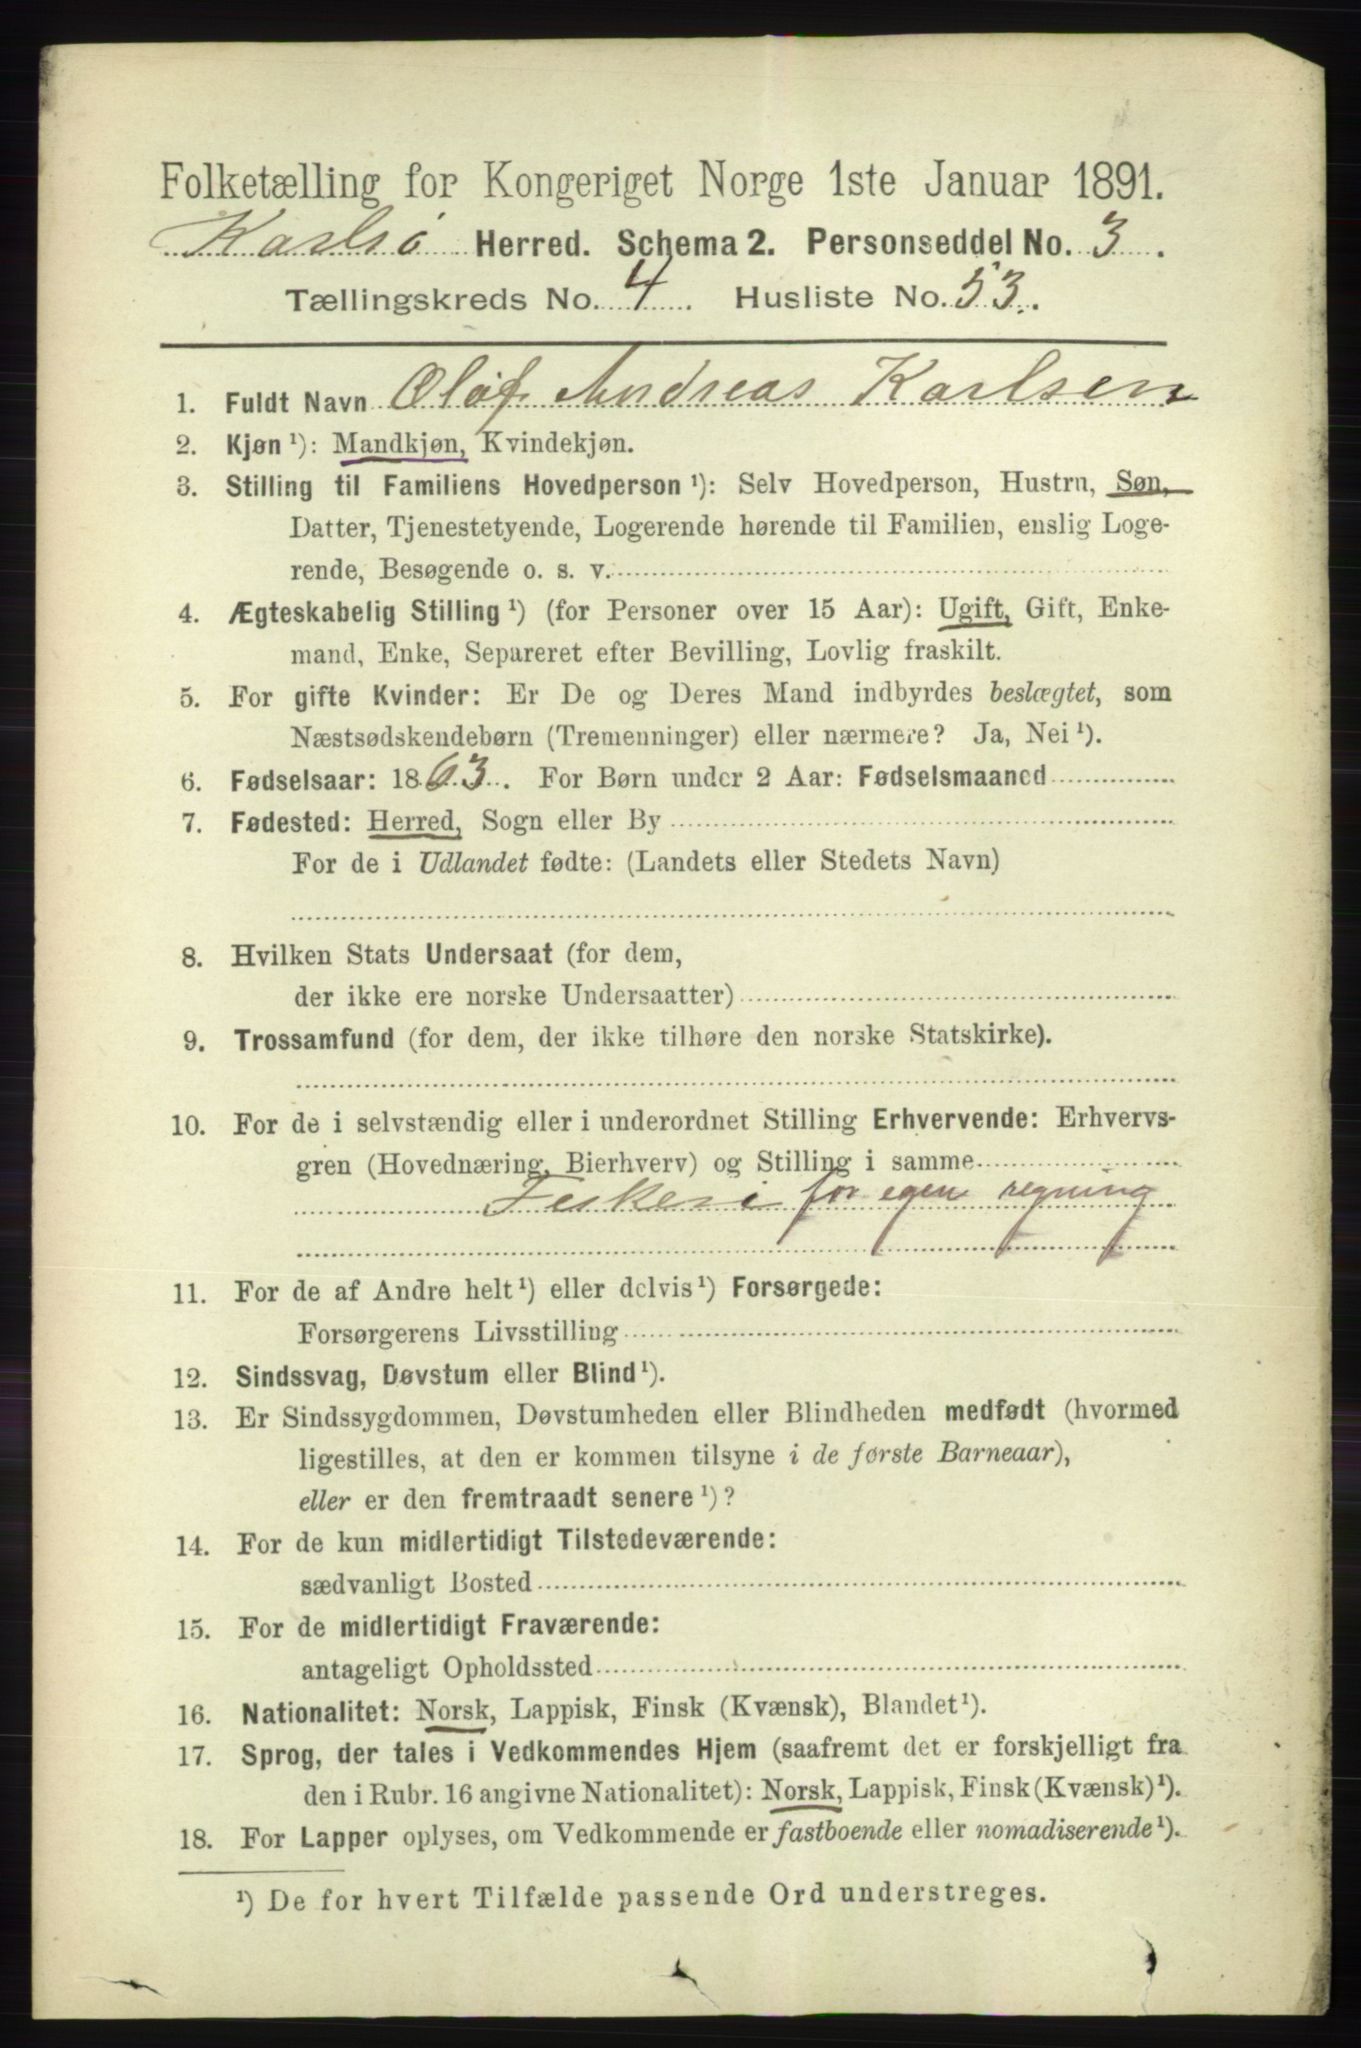 Folketælling for Kongeriget Norge 1ste Januar 1891.
Karlsö Herred. Schema 2. Personseddel No. 3.
Tællingskreds No. 4. Husliste No. 53.
1. Fuldt Navn Olöf Andreas Karlsen
2. Kjøn ¹): Mandkjøn, Kvindekjøn.
3. Stilling til Familiens Hovedperson ¹): Selv Hovedperson, Hustru, Søn,
Datter, Tjenestetyende, Logerende hørende til Familien, enslig Loge-
rende, Besøgende o. s. v.
4. Ægteskabelig Stilling ¹) (for Personer over 15 Aar): Ugift, Gift, Enke-
mand, Enke, Separeret efter Bevilling, Lovlig fraskilt.
5. For gifte Kvinder: Er De og Deres Mand indbyrdes beslægtet, som
Næstsødskendebørn (Tremenninger) eller nærmere? Ja, Nei ¹).
6. Fødselsaar: 1863. For Børn under 2 Aar: Fødselsmaaned
7. Fødested: Herred, Sogn eller By
For de i Udlandet fødte: (Landets eller Stedets Navn)
8. Hvilken Stats Undersaat (for dem,
der ikke ere norske Undersaatter)
9. Trossamfund (for dem, der ikke tilhøre den norske Statskirke).
10. For de i selvstændig eller i underordnet Stilling Erhvervende: Erhvervs-
gren (Hovednæring, Bierhverv) og Stilling i samme
Feskeri for egen regning
11. For de af Andre helt ¹) eller delvis ¹) Forsørgede:
Forsørgerens Livsstilling
12. Sindssvag, Døvstum eller Blind ¹).
13. Er Sindssygdommen, Døvstumheden eller Blindheden medfødt (hvormed
ligestilles, at den er kommen tilsyne i de første Barneaar),
eller er den fremtraadt senere ¹)?
14. For de kun midlertidigt Tilstedeværende:
sædvanligt Bosted
15. For de midlertidigt Fraværende:
antageligt Opholdssted
16. Nationalitet: Norsk, Lappisk, Finsk (Kvænsk), Blandet ¹).
17. Sprog, der tales i Vedkommendes Hjem (saafremt det er forskjelligt fra
den i Rubr. 16 angivne Nationalitet): Norsk, Lappisk, Finsk (Kvænsk) ¹).
18. For Lapper oplyses, om Vedkommende er fastboende eller nomadiserende ¹).
¹) De for hvert Tilfælde passende Ord understreges.